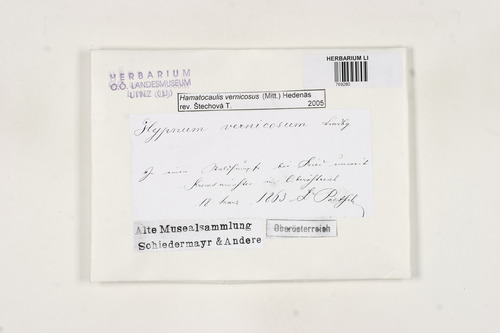 HERBARIUM
O.Ö. LANDESMUSEUM
LINZ (LI)
HERBARIUM LI
769280
Hamatocaulis vernicosus (Mitt.) Hedenäs
rev. Štechová T. 2005
Hypnum vernicosum Lindbg
bei
in Oberöstreich
1863
Alte Musealsammlung
Schiedermayr & Andere
Oberösterreich